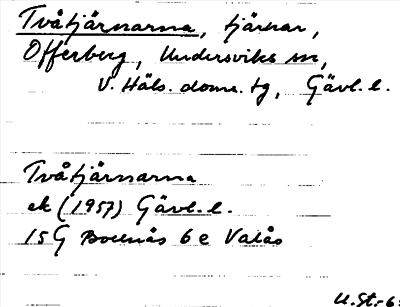 Tvåtjärnarna, tjärnar,
Offerberg, Undersviks sn,
V. Häls. doms. tg, Gävl. l.
Tvåtjärnarna
ek (1957) Gävl. l.
15G Bollnäs 6e Valås
U.St. 6